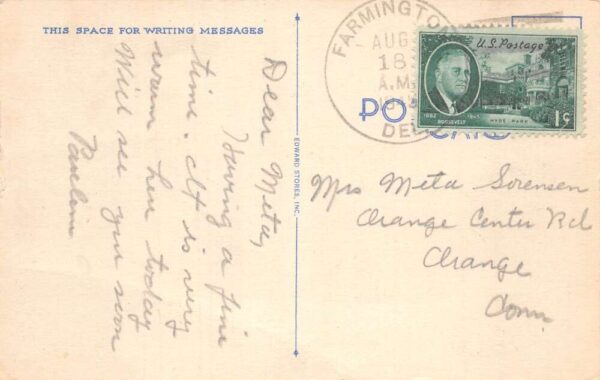 THIS SPACE FOR WRITING MESSAGES
Dear Meta,
Having a fine
time. It is very
warm here today
Will see you soon
Pauline
EDWARD STORES, INC.
FARMINGTO
AUG
18
A.M.
DEL
PO CARD
U.S. Postage
1882 1945
ROOSEVELT
HYDE PARK
1¢
Mrs Meta Sorensen
Orange Center Rd
Orange
Conn